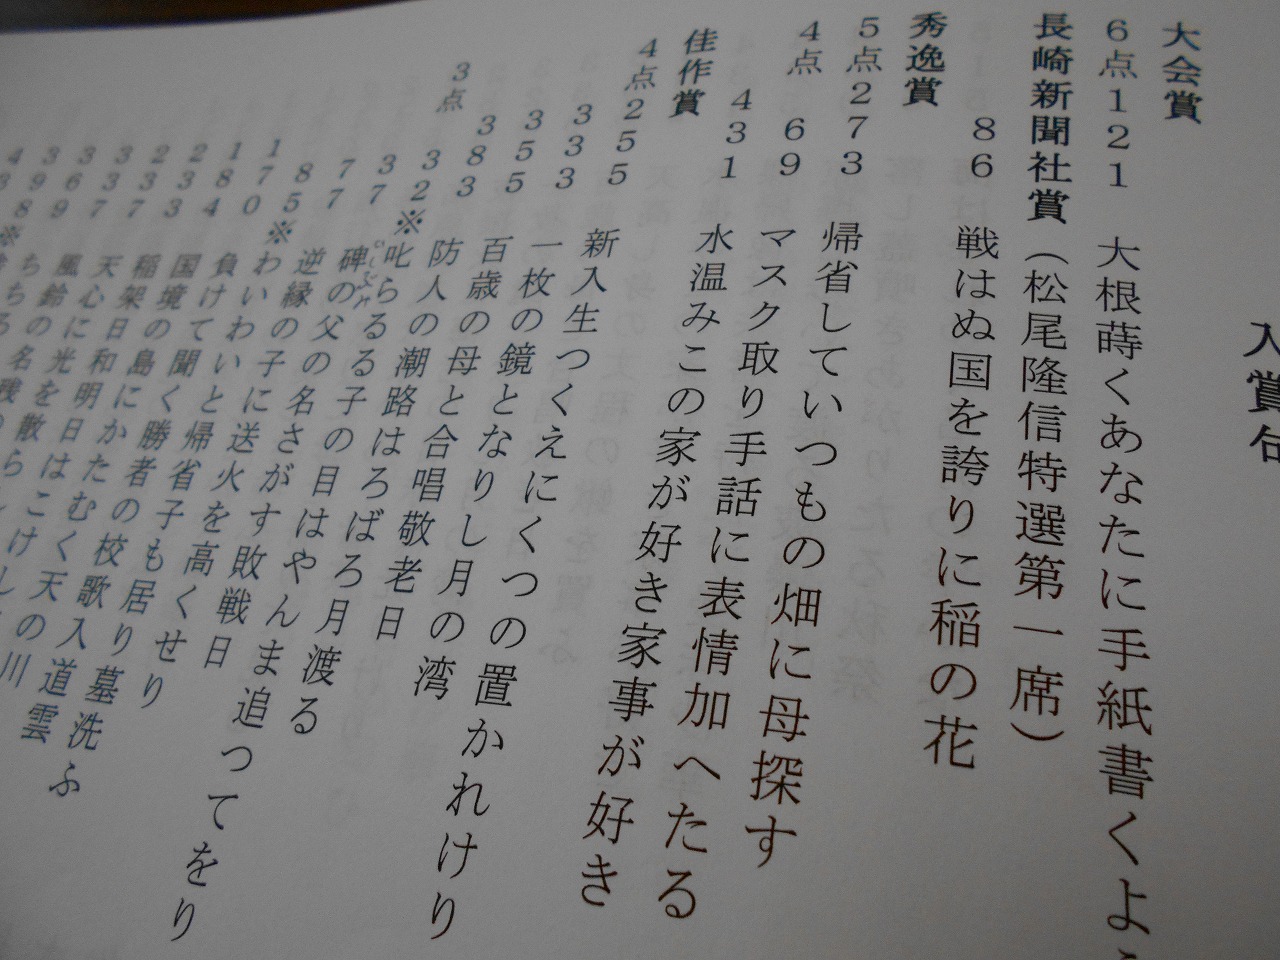 入賞句
大会賞
6点121 大根蒔くあなたに手紙書くよ
長崎新聞社賞(松尾隆信特選第一席)
86 戦はぬ国を誇りに稲の花
秀逸賞
5点273 帰省していつもの畑に母探す
4点 69 マスク取り手話に表情加へたる
431 水温みこの家が好き家事が好き
佳作賞
4点255 新入生つくえにくつの置かれけり
333 一枚の鏡となりし月の湾
355 百歳の母と合唱敬老日
3点 383 防人の潮路はろばろ月渡る
32※ 叱らるる子の目はやんま追つてをり
37 碑の父の名さがす敗戦日
77 逆縁の子に送火を高くせり
85※ わいわいと帰省子も居り墓洗ふ
170 負けて聞く勝者の校歌入道雲
184 国境の島にかたむく天の川
233 稲架日和明日は
337 天心に光を散